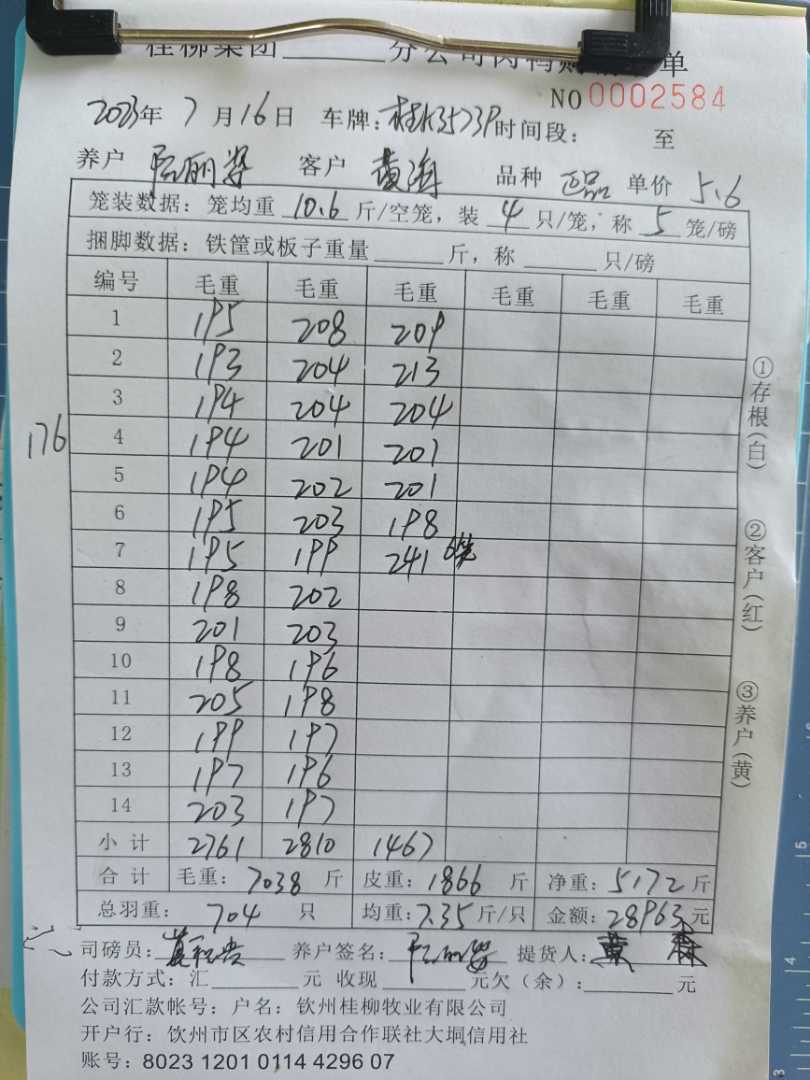 桂柳集团______分公司肉鸭 单
NO 0002584
2023年 7 月 16 日 车牌: 时间段: 至
养户 客户 黄海 品种 正品 单价 5.6
笼装数据: 笼均重 10.6 斤/空笼, 装 4 只/笼, 称 5 笼/磅
捆脚数据: 铁筐或板子重量______斤, 称______只/磅
编号 毛重 毛重 毛重 毛重 毛重 毛重
1 195 208 209
2 193 204 213
3 194 204 204
176
4 194 201 201
5 194 202 201
6 195 203 198
7 195 199 241 6笼
8 198 202
9 201 203
10 198 196
11 205 198
12 199 197
13 197 196
14 203 197
小计 2761 2810 1467
合计 毛重: 7038 斤 皮重: 1866 斤 净重: 5172 斤
总羽重: 704 只 均重: 7.35 斤/只 金额: 28963 元
司磅员: 养户签名: 提货人: 黄森
付款方式: 汇______元 收现______元欠(余):______元
公司汇款帐号: 户名: 钦州桂柳牧业有限公司
开户行: 钦州市区农村信用合作联社大垌信用社
账号: 8023 1201 0114 4296 07
①存根(白)
②客户(红)
③养户(黄)